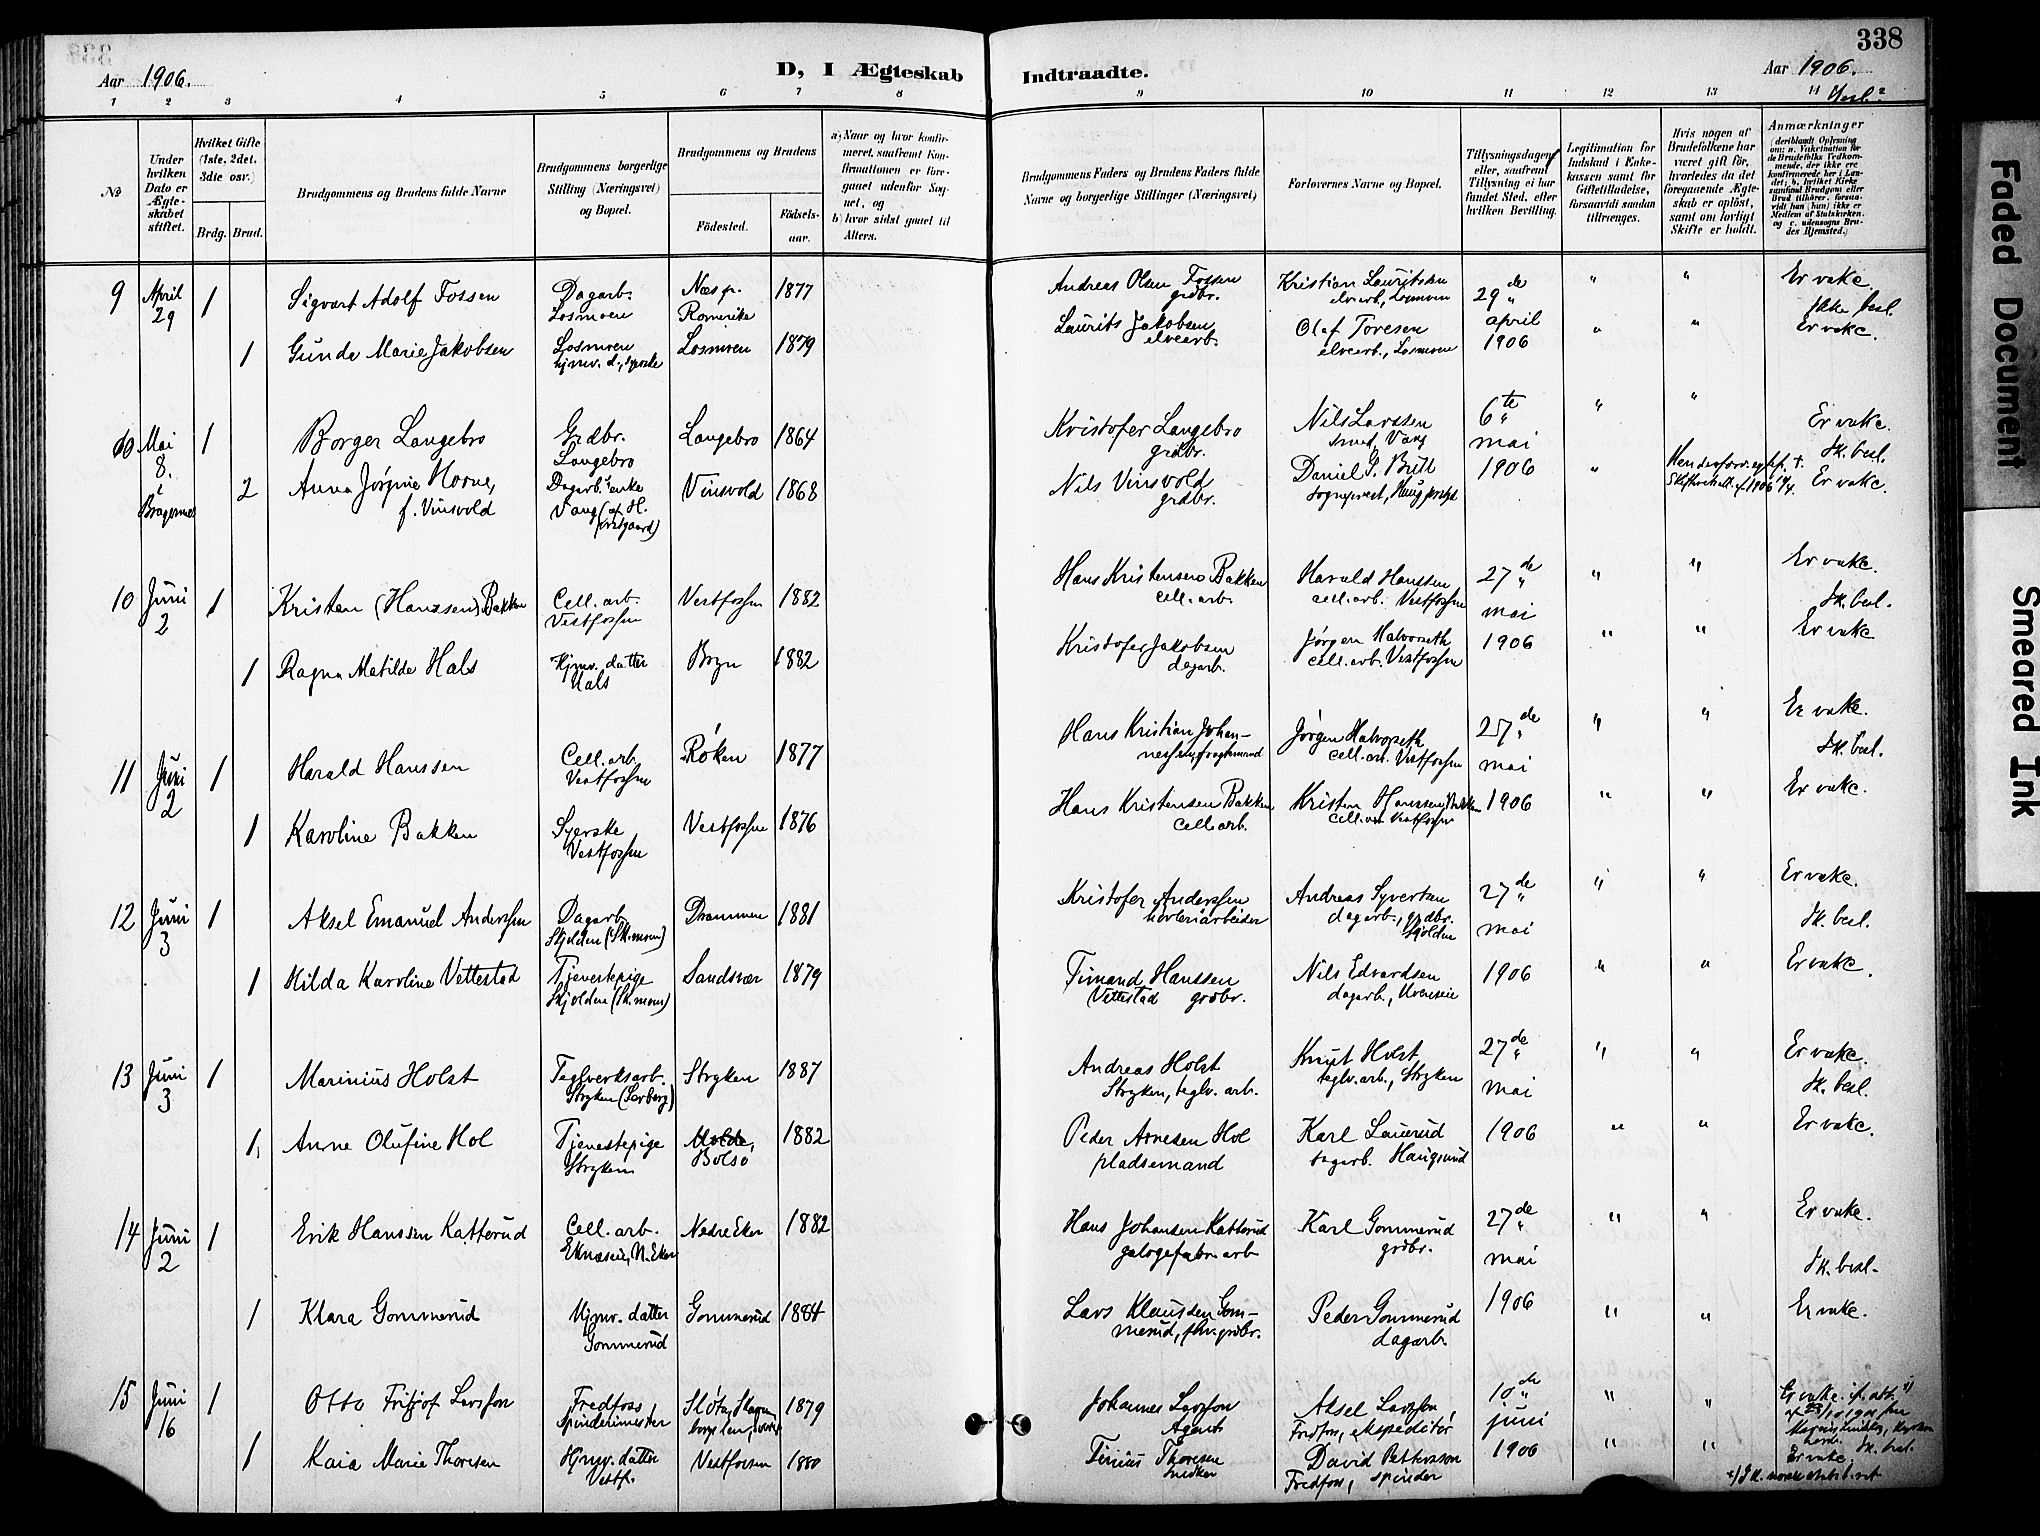 338
Aar 1906.
D, I Ægteskab Indtraadte.
Aar 1906.
1 2 3 4 5 6 7 8 9 10 11 12 13 14
No
Under hvilken Dato er Ægteskabet stiftet.
Hvilket Gifte (1ste, 2det, 3die osv.)
Brdg. Brud.
Brudgommens og Brudens fulde Navne
Brudgommens borgerlige Stilling (Næringsvei) og Bopæl.
Brudgommens og Brudens
Födested.
Födselsaar.
a) Naar og hvor konfirmeret, saafremt Konfirmationen er foregaaet udenfor Sognet, og
b) hvor sidst gaaet til Alters.
Brudgommens Faders og Brudens Faders fulde Navne og borgerlige Stillinger (Næringsvei)
Forlovernes Navne og Bopæl.
Tillysningsdagen eller, saafremt Tillysning ei har fundet Sted, efter hvilken Bevilling.
Legitimation for Indskud i Enkekassen samt for Giftetilladelse, forsaavidt saadan tiltrænges.
Hvis nogen af Brudefolkene har været gift för, hvorledes da det foregaaende Ægteskab er oplöst, samt om lovligt Skifte er holdt.
Anmærkninger
9 April 29 1 Sigvart Adolf Fossen Dagarb. Losmoen Næs p. Romerike 1877 Andreas Olsen Fossen grdbr. Kristian Lauritsen elvearb., Losmoen 29de april 1906 " " Er vakc. Ikke besl.
1 Gunda Marie Jakobsen Losmoen hjmv. d., syerske Losmoen 1879 Laurits Jakobsen elvearb. Olaf Toresen elvearb., Losmoen " " Er vakc.
10 Mai 8. i Bragernes 1 Borger Langebro Grdbr. Langebro Langebro 1864 Kristofer Langebro grdbr. Nils Larssen smed, Vang 6te mai 1906 " " Er vakc. Sk. besl.
2 Anna Jørgine Horne, f. Vinsvold Dagarb. enke Vang Vinsvold 1868 Nils Vinsvold grdbr. Daniel G. Brill sogneprest, Haug prestgd " Er vakc.
10 Juni 2 1 Kristen (Hanssen) Bakken Cell. arb. Vestfossen Vestfossen 1882 Hans Kristensen Bakken cell. arb. Harald Hanssen cell. arb. Vestfossen 27de mai 1906 " " Er vakc. Sk. besl.
1 Ragna Matilde Hals Hjmv. datter Hals 1882 Kristofer Jakobsen dagarb. Jørgen Halvorseth cell. arb. Vestfossen " " Er vakc
11 Juni 2 1 Harald Hanssen Cell. arb. Vestfossen Røken 1877 Hans Kristian Johannessen, Jørgen Halvorseth cell. arb. Vestfossen 27de mai 1906 " " Er vakc. Sk. besl.
1 Karoline Bakken Syerske Vestfossen Vestfossen 1876 Hans Kristensen Bakken, cell. arb. Kristen Hanssen Bakken cell. arb Vestfossen " " Er vakc.
12 Juni 3 1 Aksel Emanuel Anderssen Dagarb. Skjolden (Sk.moen) Drammen 1881 Kristofer Anderssen Andreas Syvertsen dagarb., grdbr. Skjolden 27de mai 1906 " " Er vakc. Sk. besl.
1 Hilda Karoline Vettestad Tjenestepige Skjolden (Sk.moen) Sandsvær 1879 Timand Hanssen Vettestad grdbr. Nils Edvardsen dagarb., " " Er vakc.
13 Juni 3 1 Marinius Holst Teglverksarb. Stryken Stryken 1887 Andreas Holst Stryken, teglv. arb. Knut Holst teglv. arb., Stryken 27de mai 1906 " " Er vakc. Sk. besl.
1, Anne Olufine Hol Tjenestepige Stryken Molde, Bolsø 1882 Peder Arnesen Hol pladsemand Karl Laurud dagarb. Haugsund " " Er vakc.
14 Juni 2 1 Erik Hanssen Katterud Cell. arb. N. Eker Nedre Eker 1882 Hans Johansen Katterud galogefabr. arb Karl Gommerud grdbr. 27de mai 1906 " " Er vakc. Sk. besl.
1 Klara Gommerud Hjmv. datter Gommerud Gommerud 1884 Lars Klausen Gommerud, grdbr. Peder Gommerud dagarb. " " Er vakc.
15 Juni 16 1 Otto Fritjof Larsson Fredfoss, spinderimester 1879 Johannes Larsson Agent Aksel Larsson, Fredfoss, ekspeditør 10de juni 1906 " " Er vakc.
1 Kaia Marie Thoresen Hjmv. datter Vestf. Vestfossen 1880 Tinius Thoresen snekker David Pettersson Fredfoss, spinder " " Er vakc. Sk. besl.
Faded Document
Smeared Ink